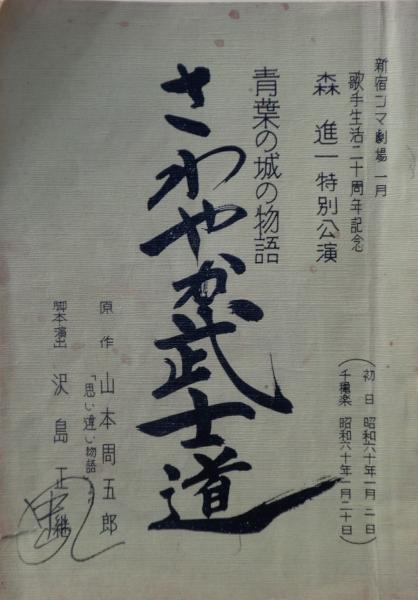 新宿コマ劇場 一月
歌手生活二十周年記念
森 進一特別公演
（初日 昭和六十年一月二日）
（千穐楽 昭和六十年一月二十日）
青葉の城の物語
さわやか武士道
原作 山本周五郎
「思い違い物語」より
脚本演出 沢島正継